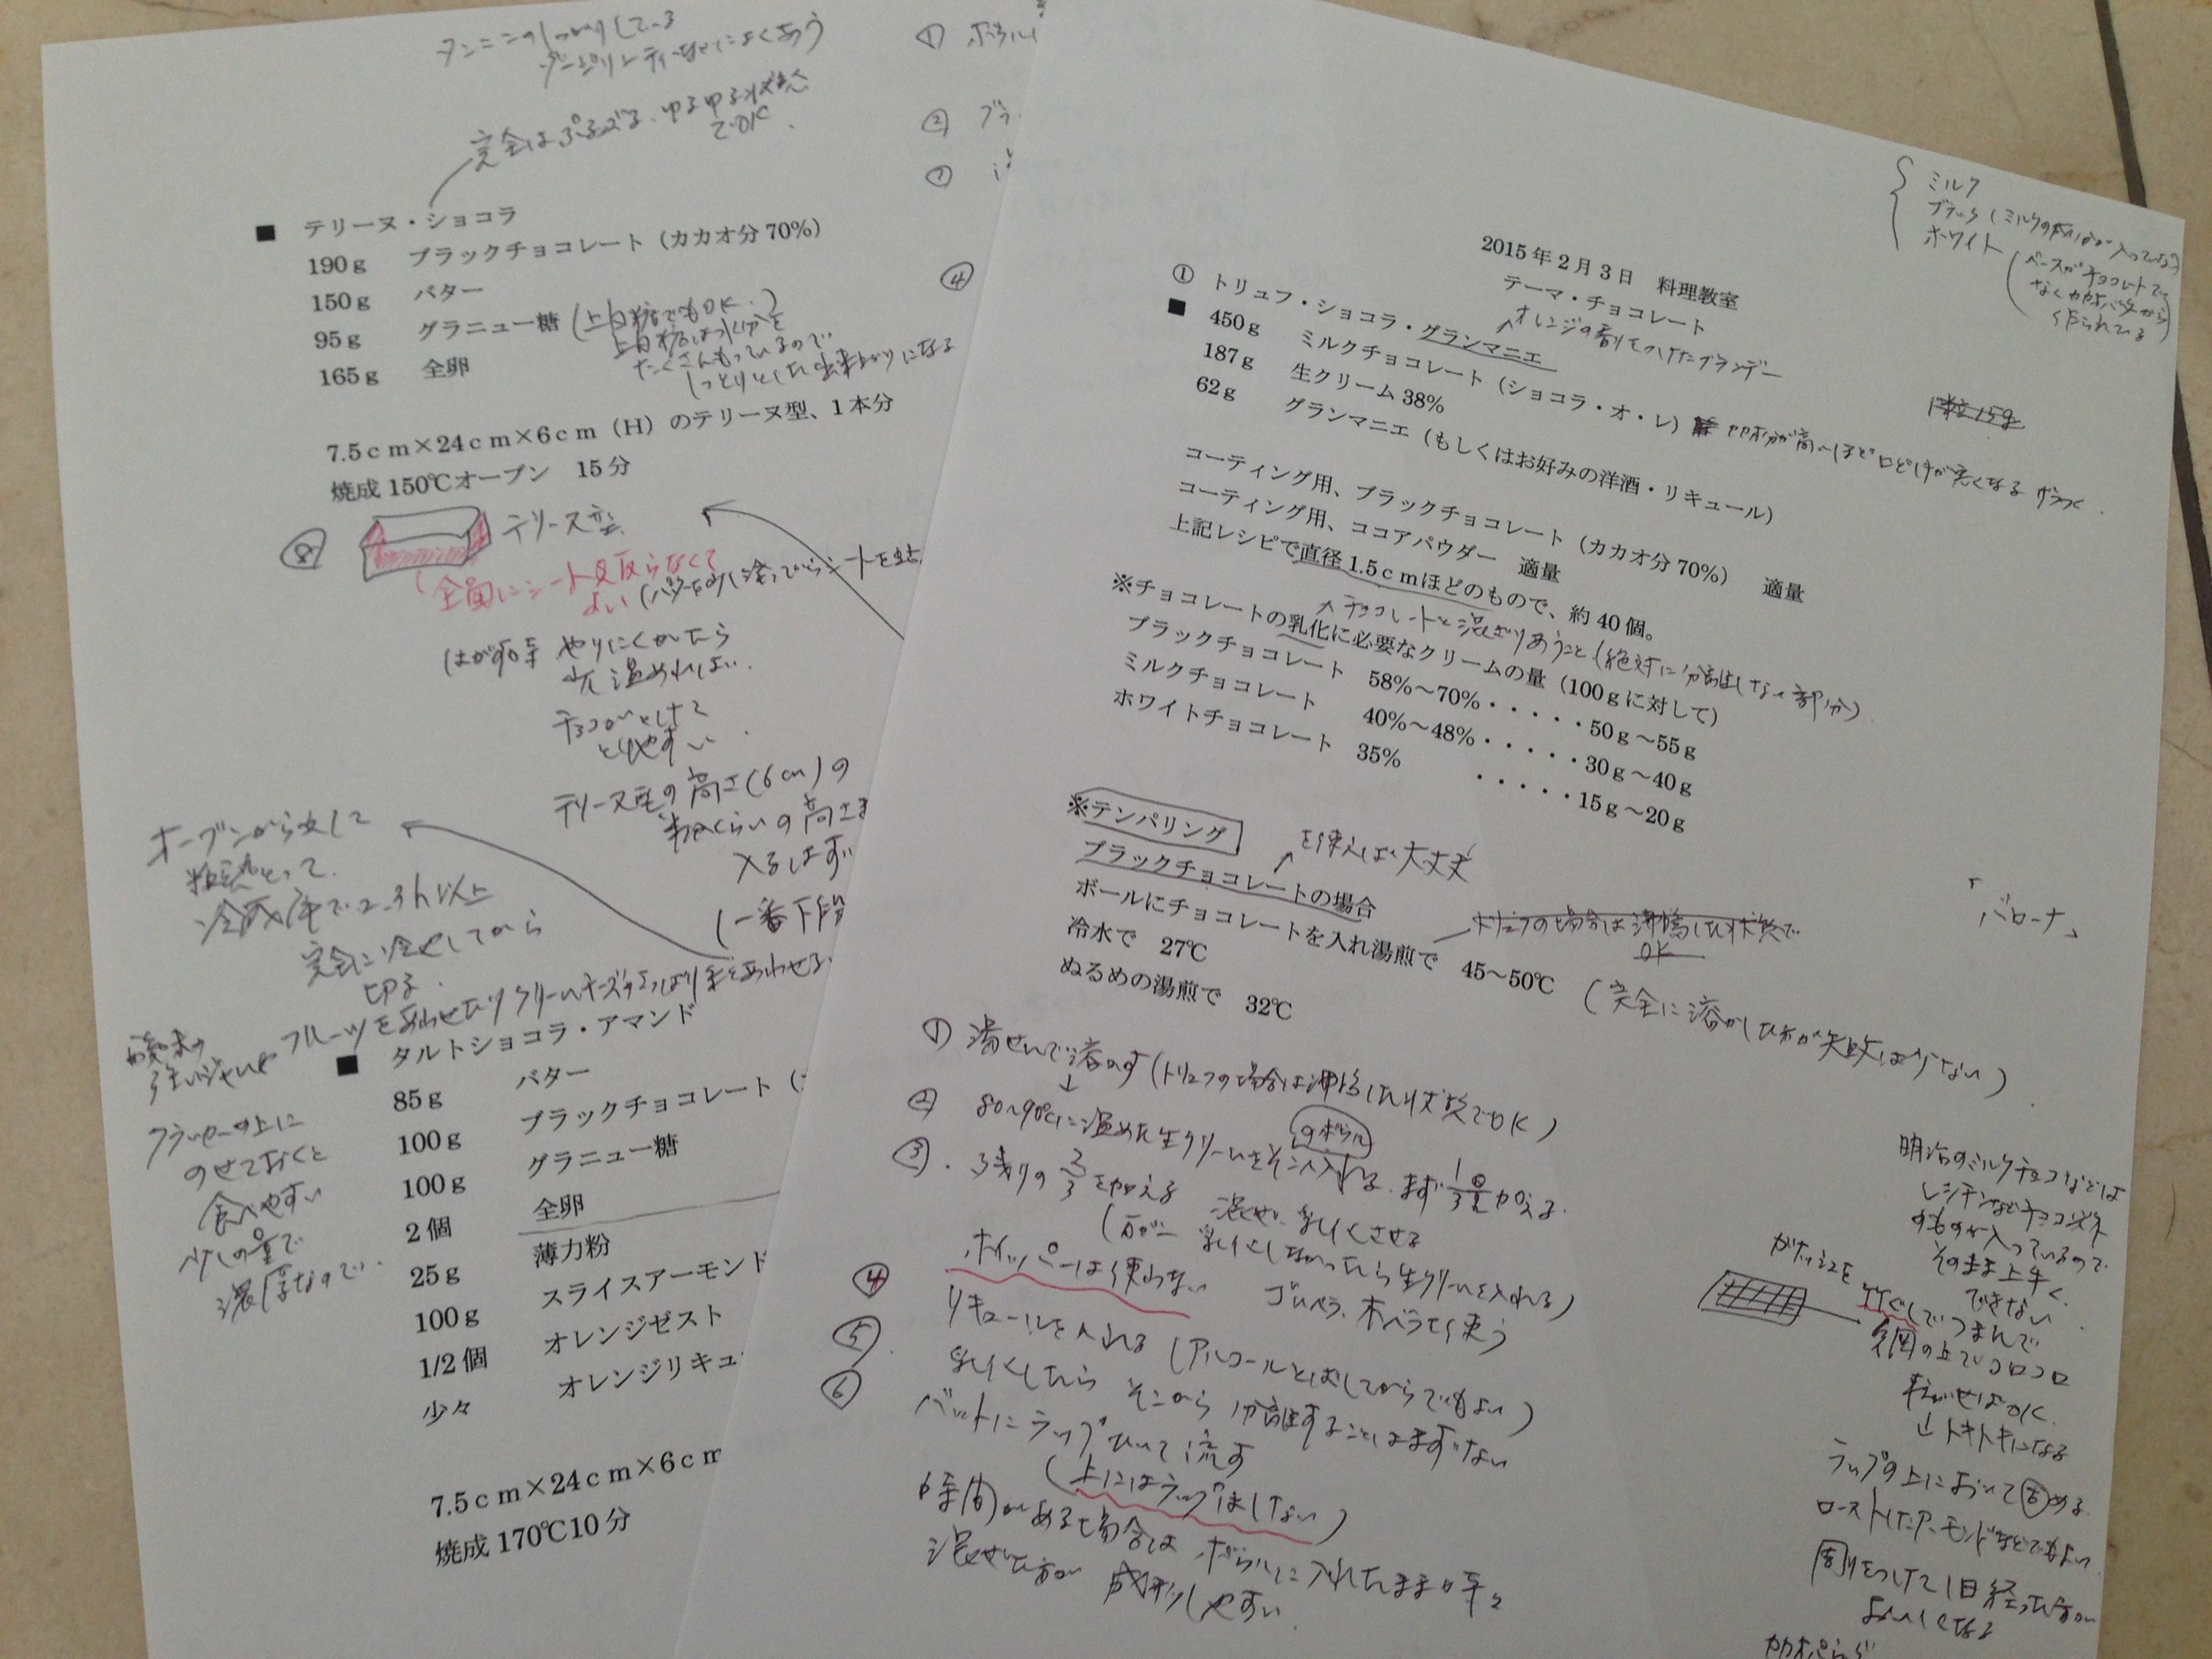 タンニンのしっかりしている
ダージリンティーなどによくあう
① ボウル
②
⑦
④
■ テリーヌ・ショコラ
190g ブラックチョコレート（カカオ分 70%）
150g バター
95g グラニュー糖（上白糖でもOK.）
上白糖は水分を
たくさんもっているので
しっとりとした出来上がりになる
165g 全卵
7.5cm×24cm×6cm（H）のテリーヌ型、1本分
焼成 150℃オーブン 15分
⑧ テリーヌ型
はがす時 やりにくかったら
温めればよい.
チョコがとけて
とりやすい.
テリーヌ型の高さ（6cm）の
半分くらいの高さま
入るはず
（一番下段
オーブンから出して
粗熱とって
冷蔵庫で2〜3h以上
完全に冷やしてから
切る.
クラッカーの上に
のせておくと
食べやすい
少しの量で
濃厚なので.
■ タルトショコラ・アマンド
85g バター
100g ブラックチョコレート（
100g グラニュー糖
2個 全卵
25g 薄力粉
100g スライスアーモンド
1/2個 オレンジゼスト
少々 オレンジリキュ
7.5cm×24cm×6cm
焼成 170℃10分
ミルク
ブラック（ミルクの成分が入っていない）
ホワイト（ベースがチョコレートで
なくカカオバターから
作られている）
2015年2月3日 料理教室
テーマ・チョコレート
① トリュフ・ショコラ・グランマニエ
オレンジの香りをつけたブランデー
■ 450g ミルクチョコレート（ショコラ・オ・レ）
カカオ分が高いほど口どけが悪くなる
1粒15g
187g 生クリーム 38%
62g グランマニエ（もしくはお好みの洋酒・リキュール）
コーティング用、ブラックチョコレート（カカオ分 70%） 適量
コーティング用、ココアパウダー 適量
上記レシピで直径 1.5cmほどのもので、約 40個。
チョコレートと混ざりあうこと（絶対に分離しない部分）
※チョコレートの乳化に必要なクリームの量（100gに対して）
ブラックチョコレート 58%～70%・・・・・50g～55g
ミルクチョコレート 40%～48%・・・・・30g～40g
ホワイトチョコレート 35% ・・・・・15g～20g
※テンパリング
を使えば大丈夫
「バローナ」
ブラックチョコレートの場合
トリュフの場合は沸騰した状態で
OK
ボールにチョコレートを入れ湯煎で 45～50℃
（完全に溶かした方が失敗は少ない）
冷水で 27℃
ぬるめの湯煎で 32℃
① 湯せんで溶かす（トリュフの場合は沸騰した状態でOK）
② 80〜90℃に温めた生クリームをそこへ入れる. まず1/3量加える.
のボウル
③ ・残りの2/3を加える 混ぜ、乳化させる
（万が一 乳化しなかったら生クリームを入れる）
ホイッパーは使わない ゴムベラ、木ベラを使う
④ リキュールを入れる（アルコールとばしてからでもよい）
⑤ 乳化したら そこから分離することはまずない
⑥ バットにラップひいて流す
（上にはラップはしない）
時間がある場合は ボウルに入れたまま時々
混ぜた方が 成形しやすい
明治のミルクチョコなどは
レシチンなどチョコ以外
のものが入っているので
そのまま上手く
できない.
ガナッシュを竹ぐしでつまんで
網の上でコロコロ
転がせばOK.
↓トキトキになる
ラップの上において固める.
ローストしたアーモンドなどでもよい
周りをつけて1日経った方が
おいしくなる